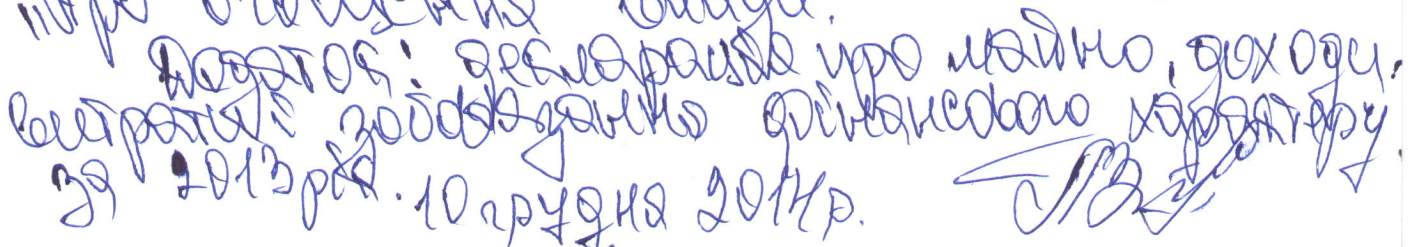 про очищення влади.
Додаток: декларація про майно, доходи,
витрати і зобов'язання фінансового характеру
за 2013 рік. 10 грудня 2014р.